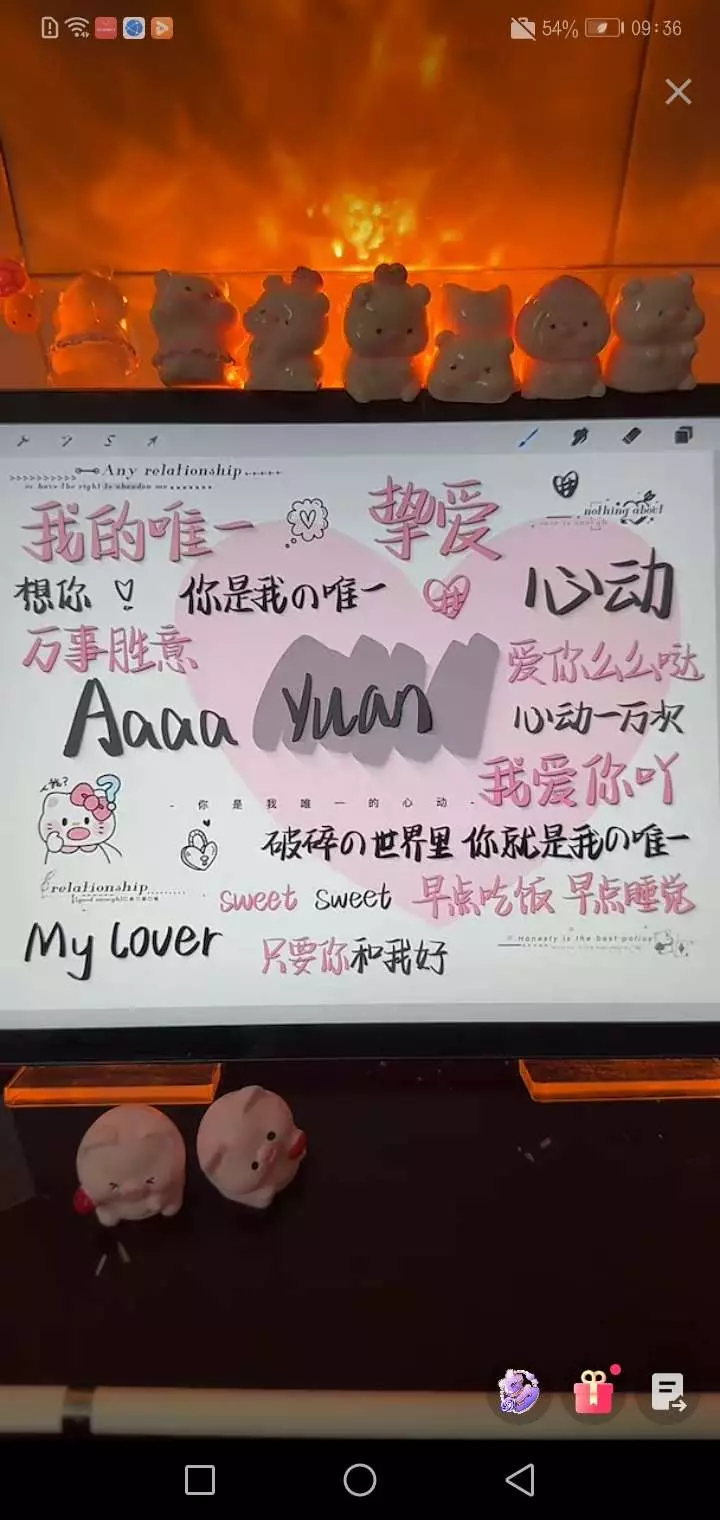 54% 09:36
Any relationship
or have the right to abandon me
nothing about
我的唯一
挚爱
想你
你是我の唯一
心动
万事胜意
爱你么么哒
Aaaa
yuan
心动一万次
我爱你吖
我?
?
你是我唯一的心动
破碎の世界里 你就是我の唯一
relationship
sweet sweet 早点吃饭 早点睡觉
My lover
只要你和我好
Honesty is the best policy